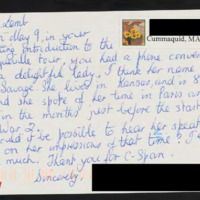 Lamb
n May 9, in your
ting Introduction to the
queville Tour, you had a phone convers
a delightful lady. I think her name
Savage. She lived in Kansas, and is 8
and she spoke of her time in Paris and
in the months just before the start
War 2.
ould it be possible to hear her speak
on her impressions of that time?
much. Thank you for C-Span.
Sincerely,
Cummaquid, MA